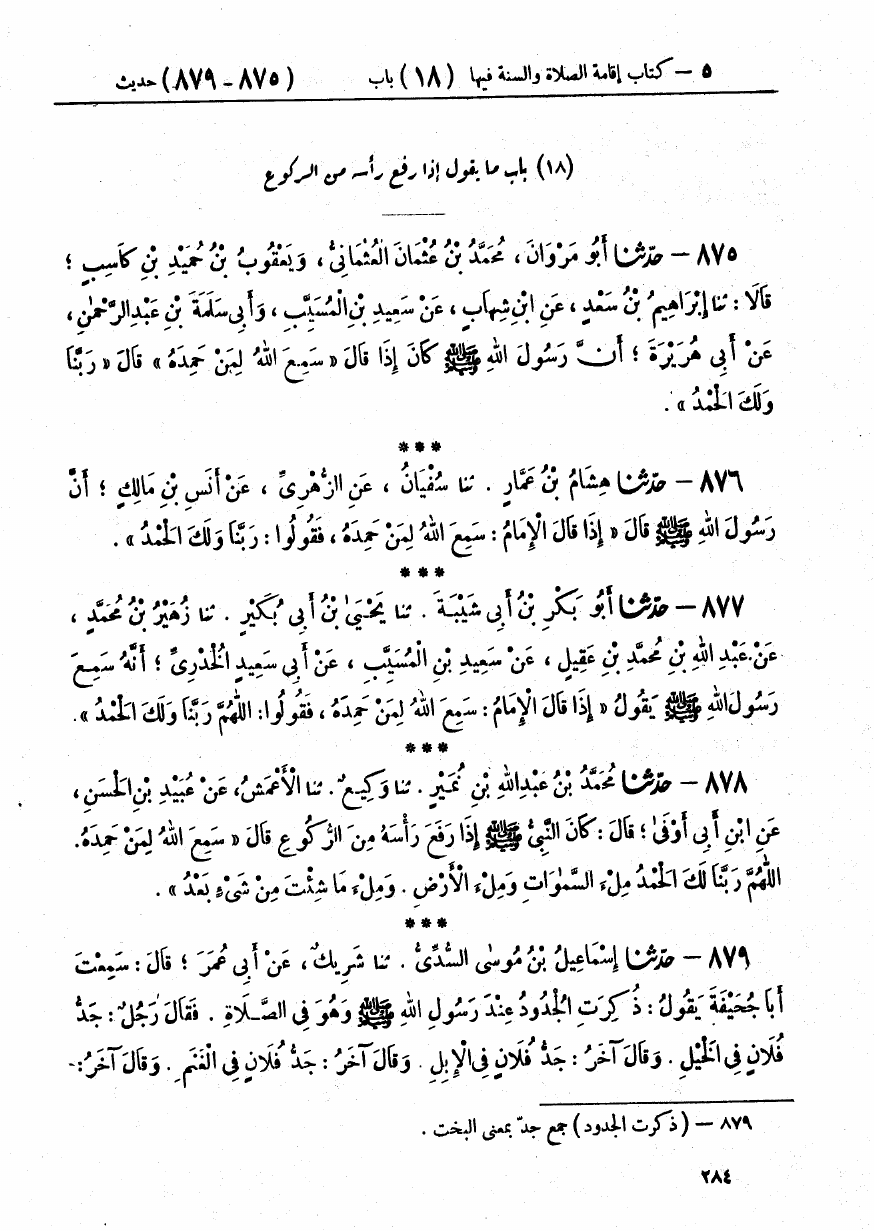 ٥ – كتاب إقامة الصلاة والسنة فيها (١٨) باب (٨٧٥ – ٨٧٩) حديث
(١٨) باب ما يقول إذا رفع رأسه من الركوع
٨٧٥ – حَدَّثَنَا أَبُو مَرْوَانَ، مُحَمَّدُ بْنُ عُثْمَانَ الْعُثْمَانِىُّ، وَيَعْقُوبُ بْنُ حُمَيْدِ بْنِ كَاسِبٍ؛
قَالَا: ثنا إِبْرَاهِيمُ بْنُ سَعْدٍ، عَنِ ابْنِ شِهَابٍ، عَنْ سَعِيدِ بْنِ الْمُسَيَّبِ، وَأَبِى سَلَمَةَ بْنِ عَبْدِ الرَّحْمٰنِ،
عَنْ أَبِى هُرَيْرَةَ؛ أَنَّ رَسُولَ اللهِ ﷺ كَانَ إِذَا قَالَ « سَمِعَ اللهُ لِمَنْ حَمِدَهُ » قَالَ « رَبَّنَا
وَلَكَ الْحَمْدُ ».
***
٨٧٦ – حَدَّثَنَا هِشَامُ بْنُ عَمَّارٍ. ثنا سُفْيَانُ، عَنِ الزُّهْرِىِّ، عَنْ أَنَسِ بْنِ مَالِكٍ؛ أَنَّ
رَسُولَ اللهِ ﷺ قَالَ « إِذَا قَالَ الْإِمَامُ: سَمِعَ اللهُ لِمَنْ حَمِدَهُ، فَقُولُوا: رَبَّنَا وَلَكَ الْحَمْدُ ».
***
٨٧٧ – حَدَّثَنَا أَبُو بَكْرِ بْنُ أَبِى شَيْبَةَ. ثنا يَحْيَىٰ بْنُ أَبِى بُكَيْرٍ. ثنا زُهَيْرُ بْنُ مُحَمَّدٍ،
عَنْ عَبْدِ اللهِ بْنِ مُحَمَّدِ بْنِ عَقِيلٍ، عَنْ سَعِيدِ بْنِ الْمُسَيَّبِ، عَنْ أَبِى سَعِيدٍ الْخُدْرِىِّ؛ أَنَّهُ سَمِعَ
رَسُولَ اللهِ ﷺ يَقُولُ « إِذَا قَالَ الْإِمَامُ: سَمِعَ اللهُ لِمَنْ حَمِدَهُ، فَقُولُوا: اللّٰهُمَّ رَبَّنَا وَلَكَ الْحَمْدُ ».
***
٨٧٨ – حَدَّثَنَا مُحَمَّدُ بْنُ عَبْدِ اللهِ بْنِ نُمَيْرٍ. ثنا وَكِيعٌ. ثنا الْأَعْمَشُ، عَنْ عُبَيْدِ بْنِ الْحَسَنِ،
عَنِ ابْنِ أَبِى أَوْفَىٰ؛ قَالَ: كَانَ النَّبِىُّ ﷺ إِذَا رَفَعَ رَأْسَهُ مِنَ الرُّكُوعِ قَالَ « سَمِعَ اللهُ لِمَنْ حَمِدَهُ.
اللّٰهُمَّ رَبَّنَا لَكَ الْحَمْدُ مِلْءَ السَّمٰوَاتِ وَمِلْءَ الْأَرْضِ. وَمِلْءَ مَا شِئْتَ مِنْ شَىْءٍ بَعْدُ ».
***
٨٧٩ – حَدَّثَنَا إِسْمَاعِيلُ بْنُ مُوسَى السُّدِّىُّ. ثنا شَرِيكٌ، عَنْ أَبِى عُمَرَ؛ قَالَ: سَمِعْتُ
أَبَا جُحَيْفَةَ يَقُولُ: ذُكِرَتِ الْجُدُودُ عِنْدَ رَسُولِ اللهِ ﷺ وَهُوَ فِى الصَّلَاةِ. فَقَالَ رَجُلٌ: جَدُّ
فُلَانٍ فِى الْخَيْلِ. وَقَالَ آخَرُ: جَدُّ فُلَانٍ فِى الْإِبِلِ. وَقَالَ آخَرُ: جَدُّ فُلَانٍ فِى الْغَنَمِ. وَقَالَ آخَرُ:
٨٧٩ – (ذكرت الجدود) جمع جدّ بمعنى البخت.
٢٨٤